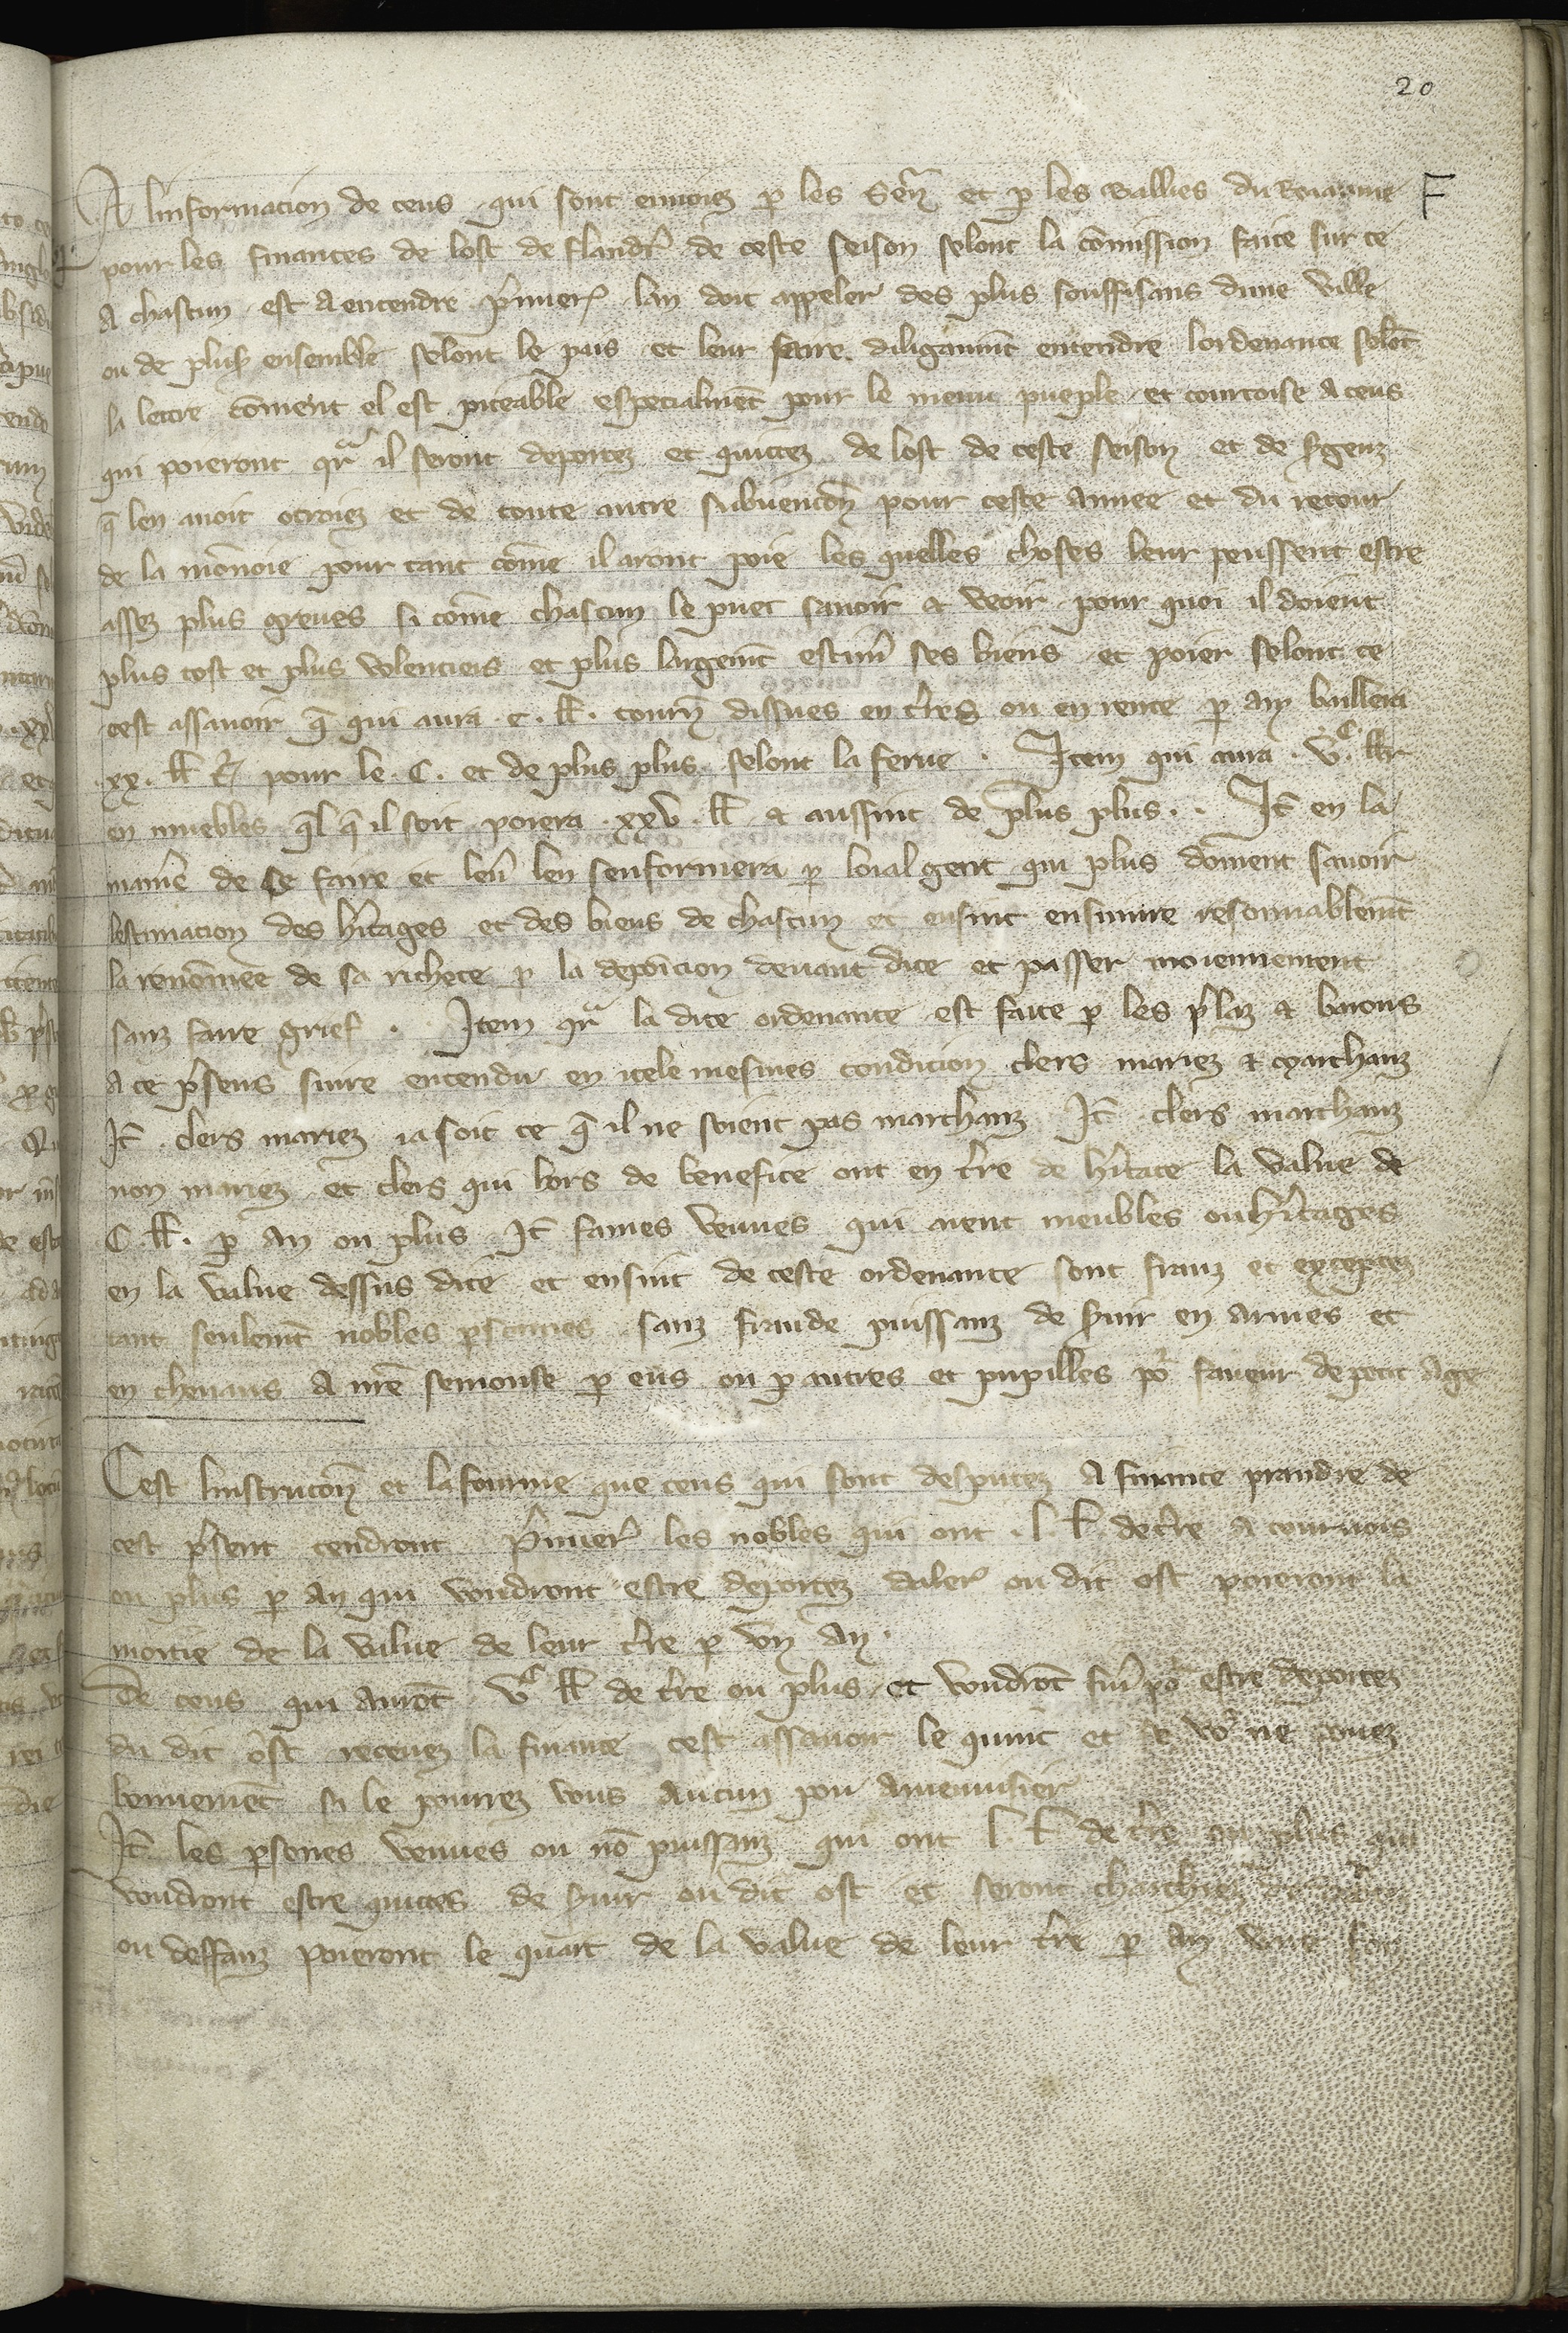 20
A linformacion de ceus qui sont envoiez p les Sen̄ et p les Baillies du Roiaume F
pour les finances de lost de flandr̄ de ceste seison selont la cōmission faite sur ce
A chascun est A entendre p̄mier̄ lan doit appeler des plus souffisans dune ville
ou de plus̄ ensemble selont le pais et leur faire diligaum̄t entendre lordenance selōt
la lettre cōment el est piteable especialmēt pour le menu pueple et courtoise A ceus
qui poieront qr̄ il seront deportez et quittez de lost de ceste seison et de s̄genz
q̄ len avoit otroiez et de toute autre subvencōn pour ceste annee et du retour
de la mōnoie pour tant cōme il aront poie les quelles choses leur peussent estre
assez plus greves si cōme chascun le puet savoir & veoir pour quoi il doient
plus tost et plus volentiers et plus largem̄t estim̄ ses biens et poier selont ce
cest assavoir q̄ qui aura .c. ll̄. tourn̄ dissues en t̄res ou en rente p an baillera
.xx. ll̄ t̄ pour le .C. et de plus plus selont la ferue . Item qui aura . vᶜ. ll̄r
en muebles q̄l q̄ il soit poiera .xxv. ll̄ & aussint de plus plus . . It̄ en la
manie᷑ de ce faire et leū len senformera p loial gent qui plus doivent savoir
lestimacion des h̄itages et des biens de chascun et ensint ensuivre resonnablem̄t
la renōmee de sa richece p la deposicion devant dite et passer moiennement
sanz faire grief . Item qr̄ la dite ordenance est faite p les p̄laz & barons
A ce p̄sens sunt entendu en itele mesmes condicion clers mariez & marchanz
It̄ . clers mariez ia soit ce q̄ il ne soient pas marchanz It̄ . clers marchanz
non mariez et clers qui hors de benefice ont en t̄re de h̄itage la value de
C. ll̄. p an ou plus It̄ fames veuves qui aient meubles ou h̄itages
en la value dessus dite et ensint de ceste ordenance sont franz et exceptez
tant seulem̄t nobles p̄sonnes sanz fraude puissanz de s̄vir en armes et
en chevaus A n̄re semonse p eus ou p autres et pupilles pō faveur de petit Age
Cest linstrucōn et la fourme que ceus qui sont desputez A finance prandre de
cest p̄sent tendront P̄mier̄ les nobles qui ont .l. l̄. de t̄re A tournois
ou plus p an qui voudront estre deportez daler ou dit ost poieront la
moitie de la value de leur t̄re p un An .
De ceus qui auront vᶜ ll̄ de t̄re ou plus et voudrōt fin̄ pō estre deportez
du dit ost recevez la finance cest assavoir le quint et se vō ne povez
bonnemēt si le pourrez vous aucun pou amenuisier
It̄ les p̄sones veuves ou nō puissanz qui ont l. l̄ de t̄re ou plus qui
voudront estre quittes de s̄vir ou dit ost et seront charchiez
ou deffanz poieront le quart de la value de leur t̄re p an